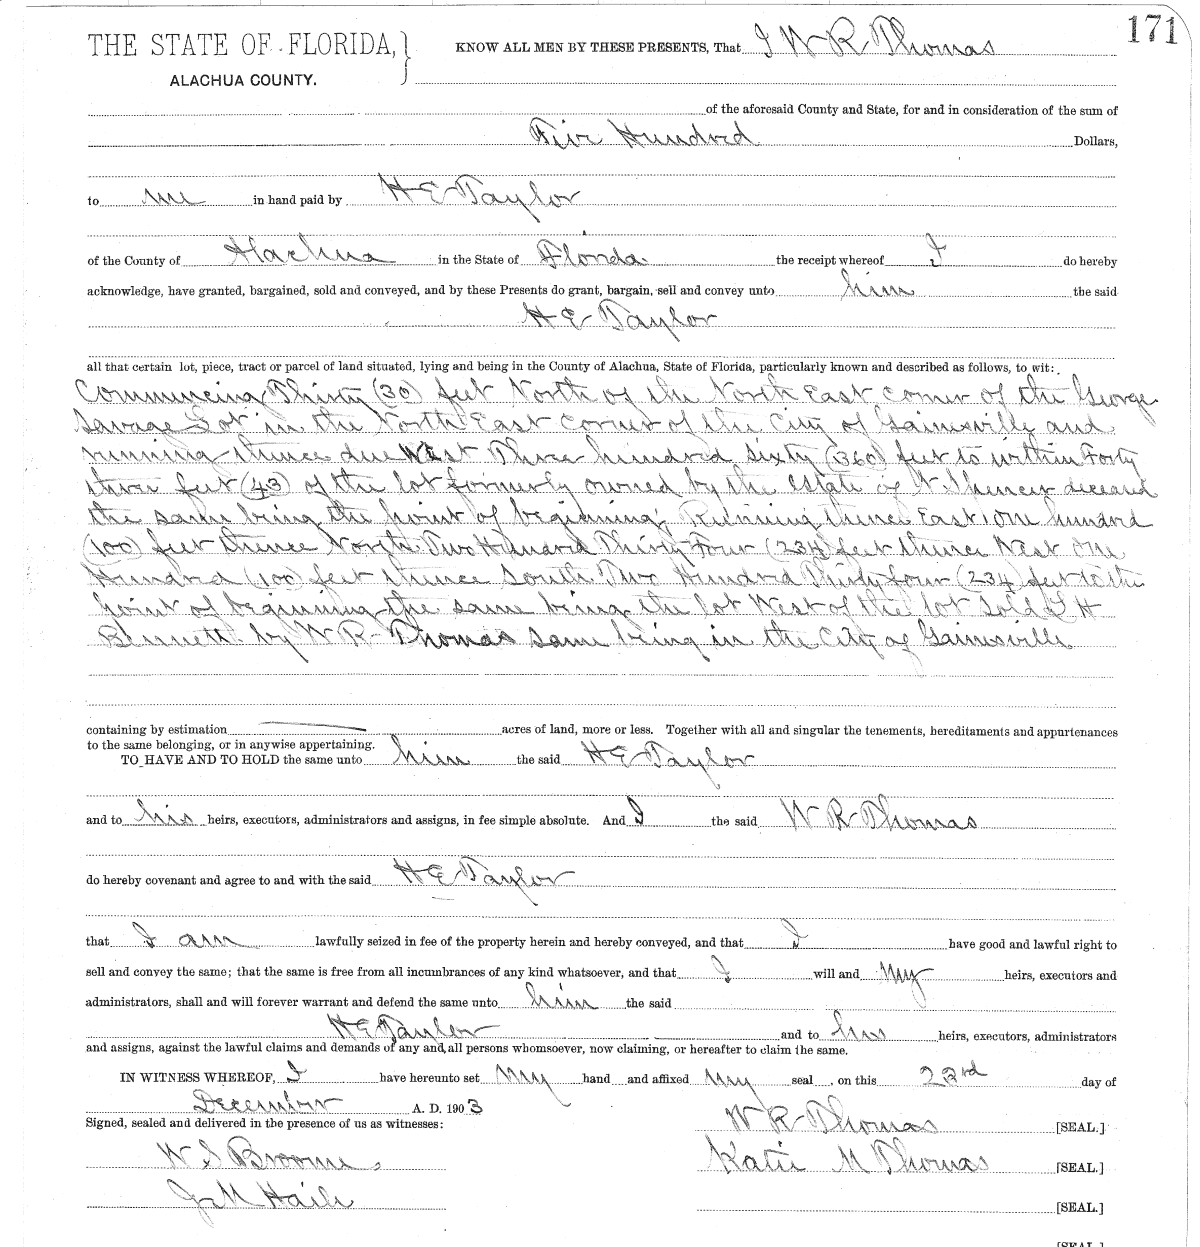 171
THE STATE OF FLORIDA,
ALACHUA COUNTY.
KNOW ALL MEN BY THESE PRESENTS, That I W R Thomas
of the aforesaid County and State, for and in consideration of the sum of
Five Hundred Dollars,
to me in hand paid by H E Taylor
of the County of Alachua in the State of Florida the receipt whereof I do hereby
acknowledge, have granted, bargained, sold and conveyed, and by these Presents do grant, bargain, sell and convey unto him the said
H E Taylor
all that certain lot, piece, tract or parcel of land situated, lying and being in the County of Alachua, State of Florida, particularly known and described as follows, to wit:
Commencing Thirty (30) feet North of the North East corner of the George
Savage Lot in the North East corner of the City of Gainesville and
running thence due West Three hundred sixty (360) feet to within Forty
three feet (43) of the lot formerly owned by the estate of deceased
the same being the point of beginning, Running thence East one hundred
(100) feet thence North Two Hundred Thirty Four (234) feet thence West One
Hundred (100) feet thence South Two Hundred Thirty four (234 feet to the
point of beginning the same being the lot West of the lot sold L H
Bennett by W R Thomas same being in the City of Gainesville
containing by estimation acres of land, more or less. Together with all and singular the tenements, hereditaments and appurtenances
to the same belonging, or in anywise appertaining.
TO HAVE AND TO HOLD the same unto him the said H E Taylor
and to his heirs, executors, administrators and assigns, in fee simple absolute. And I the said W R Thomas
do hereby covenant and agree to and with the said H E Taylor
that I am lawfully seized in fee of the property herein and hereby conveyed, and that I have good and lawful right to
sell and convey the same; that the same is free from all incumbrances of any kind whatsoever, and that I will and my heirs, executors and
administrators, shall and will forever warrant and defend the same unto him the said
H E Taylor and to his heirs, executors, administrators
and assigns, against the lawful claims and demands of any and all persons whomsoever, now claiming, or hereafter to claim the same.
IN WITNESS WHEREOF, I have hereunto set my hand and affixed my seal, on this 23rd day of
December A. D. 1903
Signed, sealed and delivered in the presence of us as witnesses:
W R Thomas [SEAL.]
W S Broome
Katie M Thomas [SEAL.]
Haile
[SEAL.]